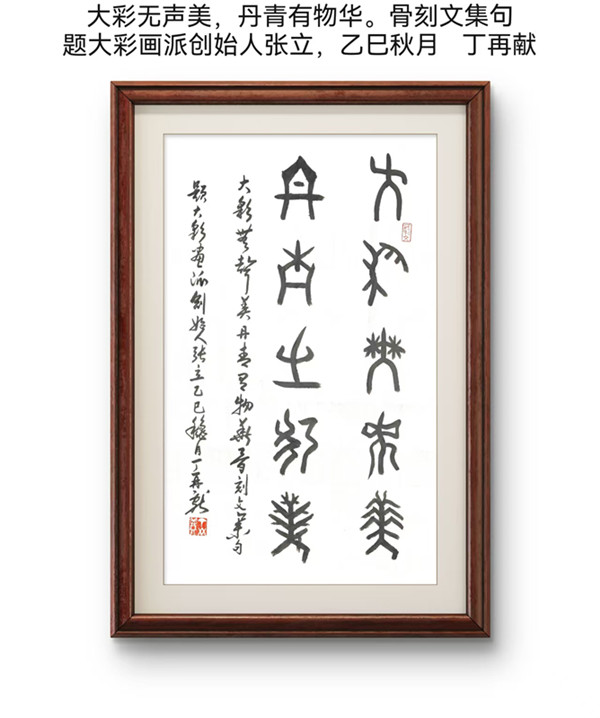 大彩无声美，丹青有物华。骨刻文集句
题大彩画派创始人张立，乙巳秋月 丁再献
大彩无声美
丹青㞢物华
大彩無聲美丹青有物華骨刻文集句
题大彩畫派創始人张立乙巳穐月丁再献